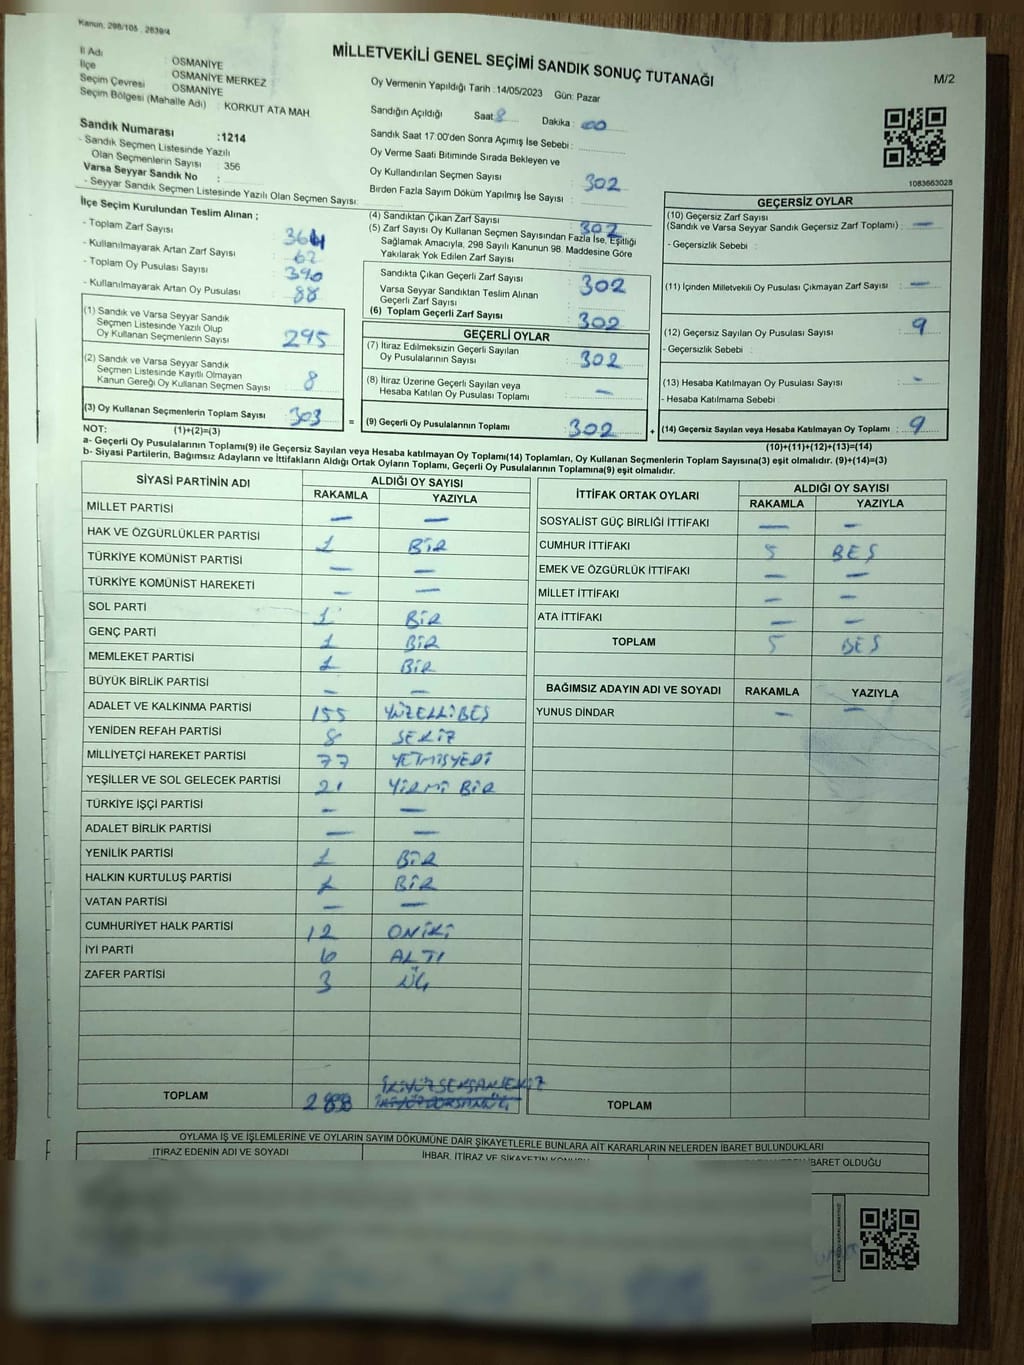 Kanun, 298/105 , 2839/4
MİLLETVEKİLİ GENEL SEÇİMİ SANDIK SONUÇ TUTANAĞI
M/2
İl Adı OSMANİYE
İlçe OSMANİYE MERKEZ
Seçim Çevresi OSMANİYE
Seçim Bölgesi (Mahalle Adı) : KORKUT ATA MAH
Sandık Numarası :1214
- Sandık Seçmen Listesinde Yazılı
Olan Seçmenlerin Sayısı : 356
Varsa Seyyar Sandık No :
- Seyyar Sandık Seçmen Listesinde Yazılı Olan Seçmen Sayısı:
Oy Vermenin Yapıldığı Tarih :14/05/2023 Gün: Pazar
Sandığın Açıldığı Saat: 8 Dakika : 00
Sandık Saat 17:00'den Sonra Açımış İse Sebebi :
Oy Verme Saati Bitiminde Sırada Bekleyen ve
Oy Kullandırılan Seçmen Sayısı : 302
Birden Fazla Sayım Döküm Yapılmış İse Sayısı :
1083663028
İlçe Seçim Kurulundan Teslim Alınan ;
- Toplam Zarf Sayısı : 364
- Kullanılmayarak Artan Zarf Sayısı : 62
- Toplam Oy Pusulası Sayısı : 390
- Kullanılmayarak Artan Oy Pusulası : 88
(1) Sandık ve Varsa Seyyar Sandık
Seçmen Listesinde Yazılı Olup
Oy Kullanan Seçmenlerin Sayısı : 295
(2) Sandık ve Varsa Seyyar Sandık
Seçmen Listesinde Kayıtlı Olmayan
Kanun Gereği Oy Kullanan Seçmen Sayısı : 8
(3) Oy Kullanan Seçmenlerin Toplam Sayısı : 303 =
(4) Sandıktan Çıkan Zarf Sayısı : 302
(5) Zarf Sayısı Oy Kullanan Seçmen Sayısından Fazla İse, Eşitliği
Sağlamak Amacıyla, 298 Sayılı Kanunun 98. Maddesine Göre
Yakılarak Yok Edilen Zarf Sayısı :
Sandıkta Çıkan Geçerli Zarf Sayısı : 302
Varsa Seyyar Sandıktan Teslim Alınan
Geçerli Zarf Sayısı :
(6) Toplam Geçerli Zarf Sayısı : 302
GEÇERLİ OYLAR
(7) İtiraz Edilmeksizin Geçerli Sayılan
Oy Pusulalarının Sayısı : 302
(8) İtiraz Üzerine Geçerli Sayılan veya
Hesaba Katılan Oy Pusulası Toplamı : —
(9) Geçerli Oy Pusulalarının Toplamı : 302 +
GEÇERSİZ OYLAR
(10) Geçersiz Zarf Sayısı
(Sandık ve Varsa Seyyar Sandık Geçersiz Zarf Toplamı) : —
- Geçersizlik Sebebi :
(11) İçinden Milletvekili Oy Pusulası Çıkmayan Zarf Sayısı : —
(12) Geçersiz Sayılan Oy Pusulası Sayısı : 9
- Geçersizlik Sebebi :
(13) Hesaba Katılmayan Oy Pusulası Sayısı : -
- Hesaba Katılmama Sebebi :
(14) Geçersiz Sayılan veya Hesaba Katılmayan Oy Toplamı : 9
NOT: (1)+(2)=(3)
(10)+(11)+(12)+(13)=(14)
a- Geçerli Oy Pusulalarının Toplamı(9) ile Geçersiz Sayılan veya Hesaba katılmayan Oy Toplamı(14) Toplamları, Oy Kullanan Seçmenlerin Toplam Sayısına(3) eşit olmalıdır. (9)+(14=(3)
b- Siyasi Partilerin, Bağımsız Adayların ve İttifakların Aldığı Ortak Oyların Toplamı, Geçerli Oy Pusulalarının Toplamına(9) eşit olmalıdır.
SİYASİ PARTİNİN ADI ALDIĞI OY SAYISI
RAKAMLA YAZIYLA
MİLLET PARTİSİ — —
HAK VE ÖZGÜRLÜKLER PARTİSİ 1 BİR
TÜRKİYE KOMÜNİST PARTİSİ — —
TÜRKİYE KOMÜNİST HAREKETİ — —
SOL PARTİ 1 BİR
GENÇ PARTİ 1 BİR
MEMLEKET PARTİSİ 1 BİR
BÜYÜK BİRLİK PARTİSİ — —
ADALET VE KALKINMA PARTİSİ 155 YÜZELLİBEŞ
YENİDEN REFAH PARTİSİ 8 SEKİZ
MİLLİYETÇİ HAREKET PARTİSİ 77 YETMİŞYEDİ
YEŞİLLER VE SOL GELECEK PARTİSİ 21 YİRMİ BİR
TÜRKİYE İŞÇİ PARTİSİ — —
ADALET BİRLİK PARTİSİ — —
YENİLİK PARTİSİ 1 BİR
HALKIN KURTULUŞ PARTİSİ 1 BİR
VATAN PARTİSİ — —
CUMHURİYET HALK PARTİSİ 12 ONİKİ
İYİ PARTİ 6 ALTI
ZAFER PARTİSİ 3 ÜÇ
İKİYÜZSEKSANSEKİZ
TOPLAM 288
İTTİFAK ORTAK OYLARI ALDIĞI OY SAYISI
RAKAMLA YAZIYLA
SOSYALİST GÜÇ BİRLİĞİ İTTİFAKI — —
CUMHUR İTTİFAKI 5 BEŞ
EMEK VE ÖZGÜRLÜK İTTİFAKI — —
MİLLET İTTİFAKI — —
ATA İTTİFAKI — —
TOPLAM 5 BEŞ
BAĞIMSIZ ADAYIN ADI VE SOYADI RAKAMLA YAZIYLA
YUNUS DİNDAR — —
TOPLAM
OYLAMA İŞ VE İŞLEMLERİNE VE OYLARIN SAYIM DÖKÜMÜNE DAİR ŞİKAYETLERLE BUNLARA AİT KARARLARIN NELERDEN İBARET BULUNDUKLARI
İTİRAZ EDENİN ADI VE SOYADI
İHBAR, İTİRAZ VE ŞİKAYETİN KONUSU
İBARET OLDUĞU